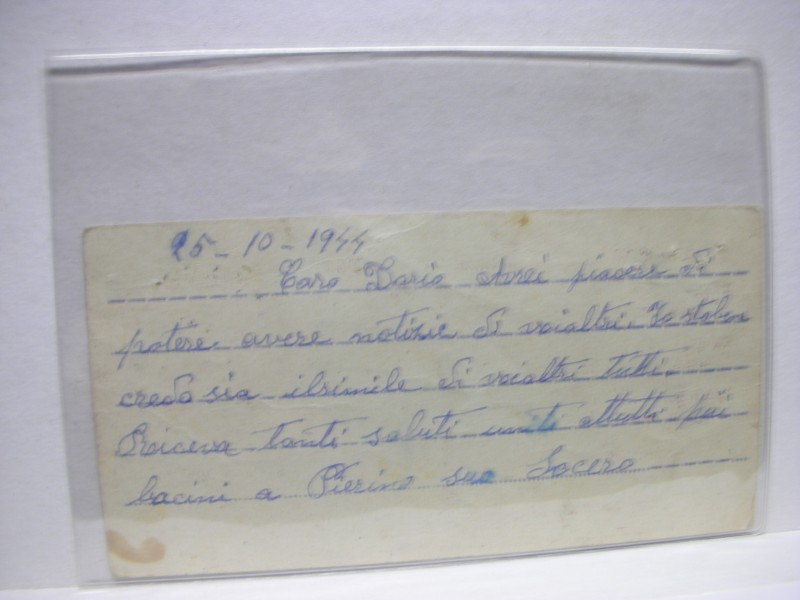 25-10-1944
Caro Dario Avrei piacere di
potere avere notizie di voialtri Io sto bene
credo sia ilsimile di voialtri tutti.
Riceva tanti saluti uniti attutti più
bacini a Pierino suo Socero